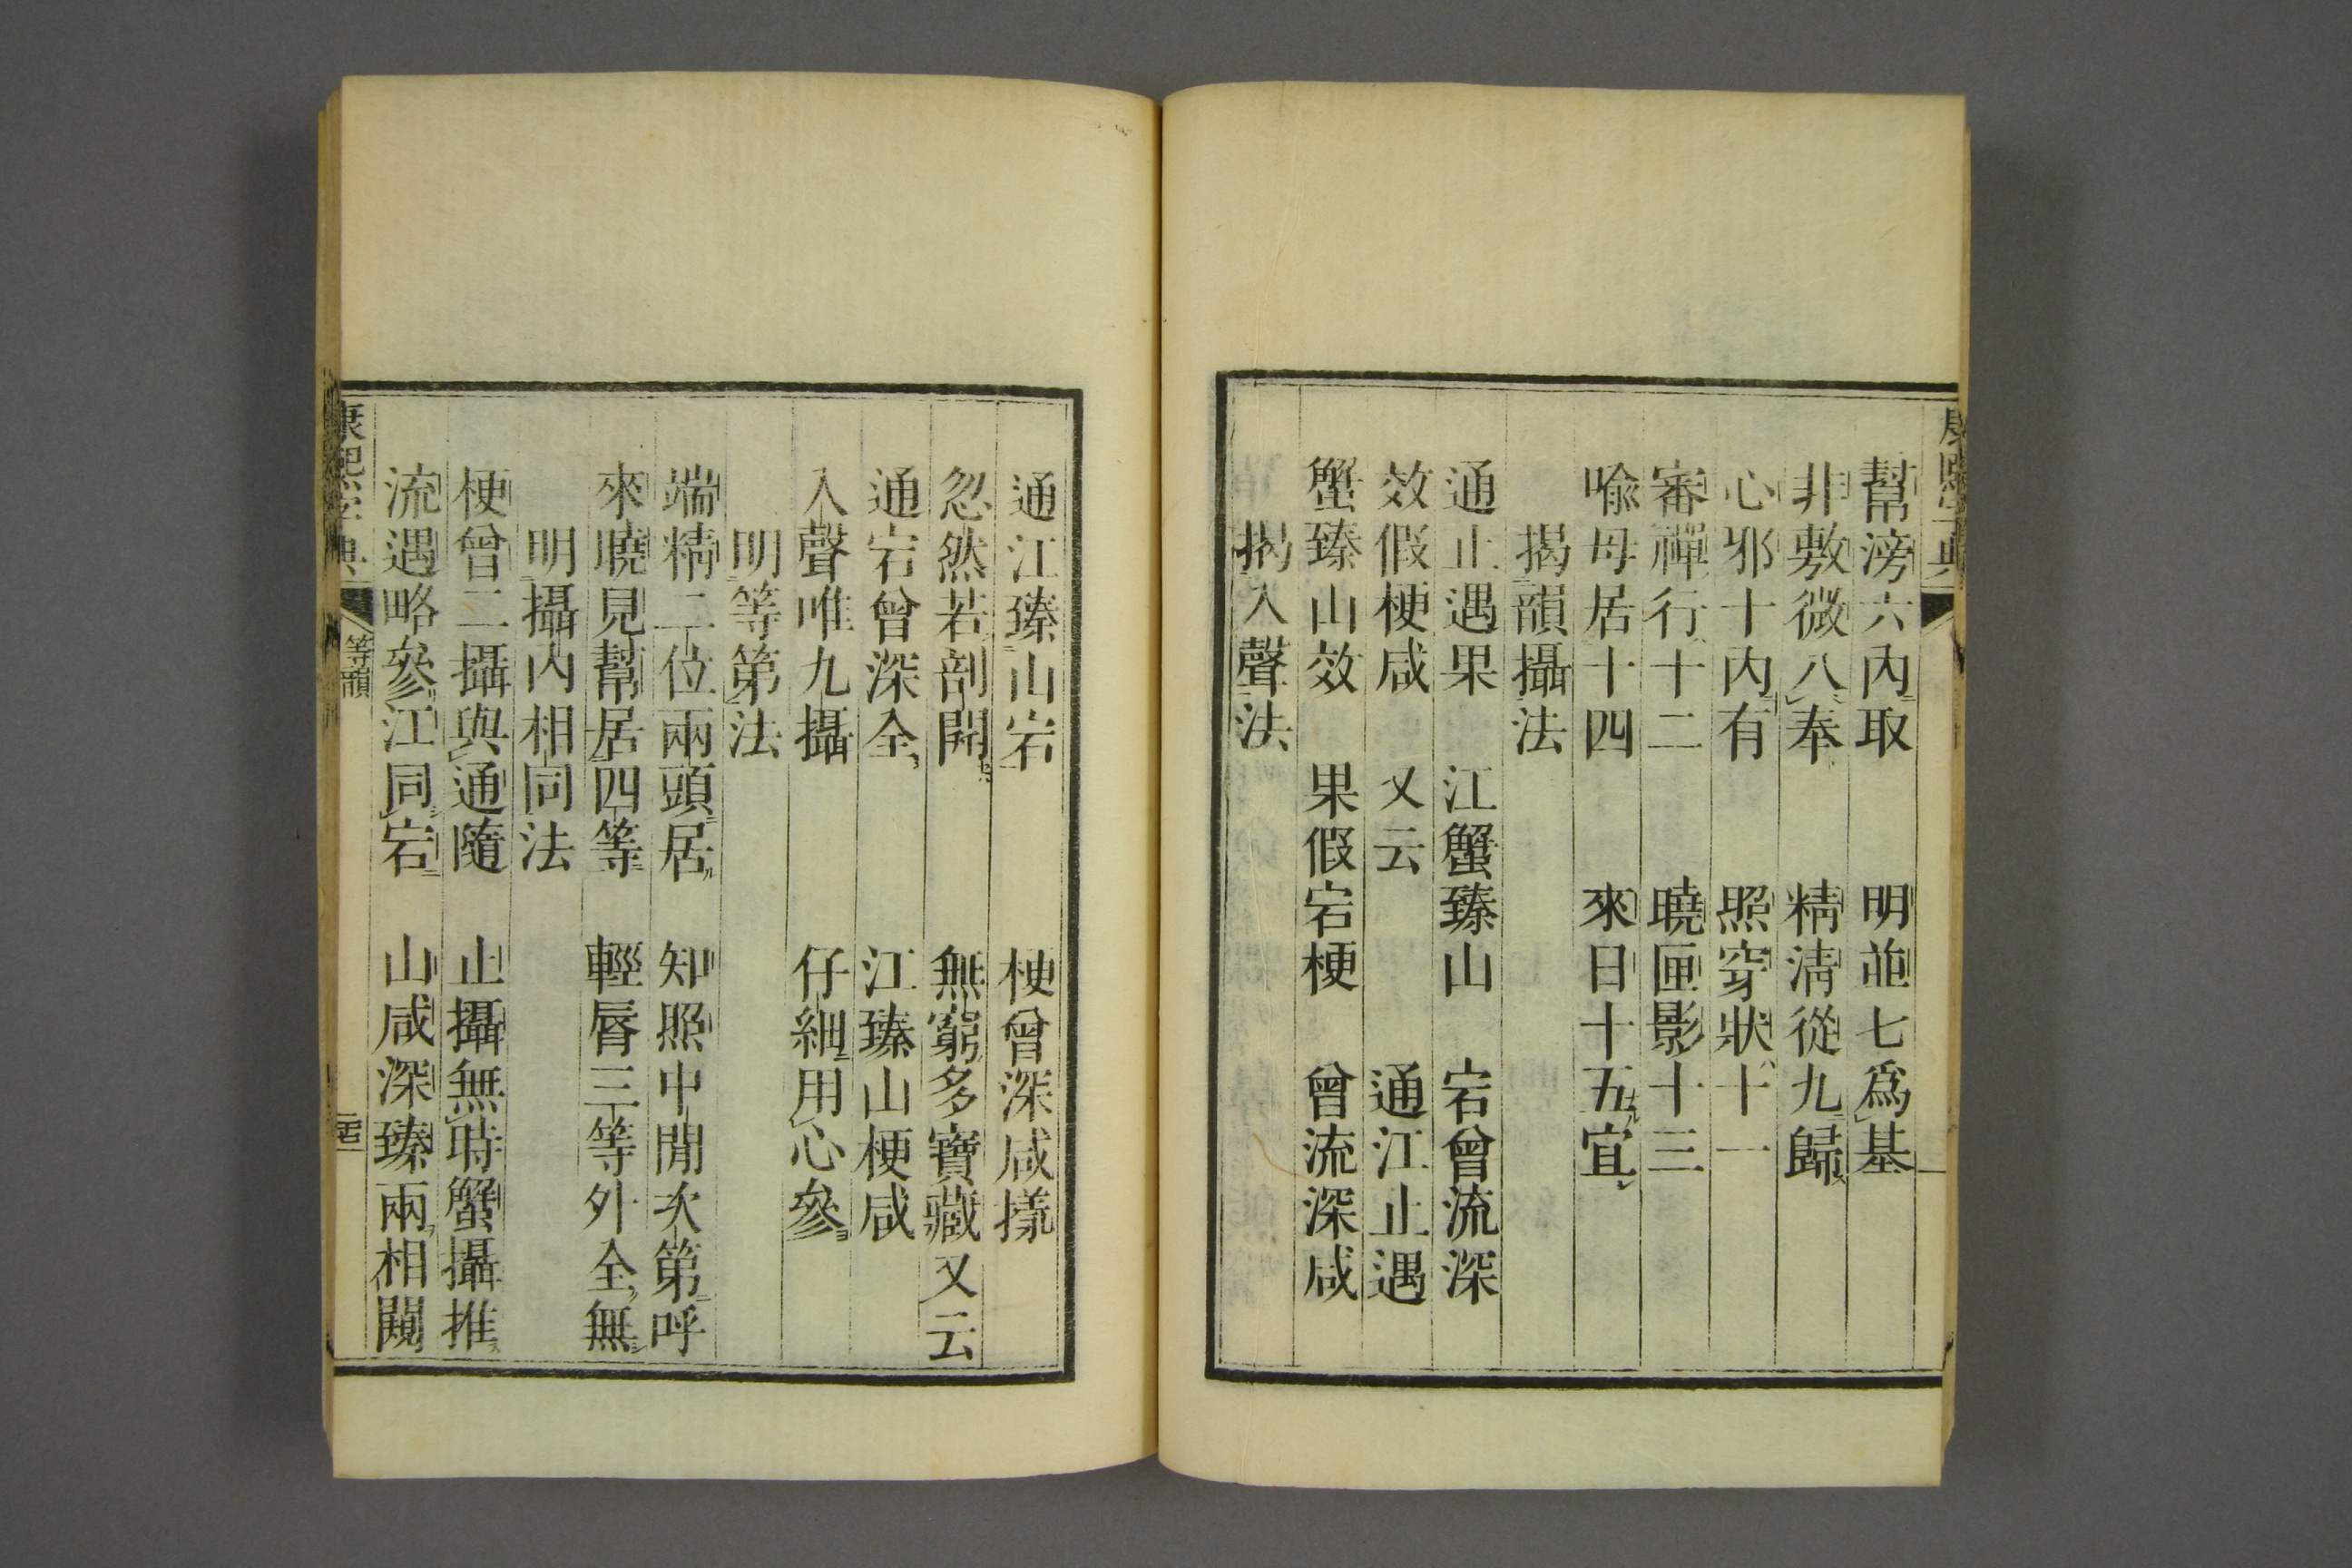 康熙字典
幫滂六內取　明並七爲基
非敷微八奉　精淸從九歸
心邪十內有　照穿狀十一
審禪行十二　曉匣影十三
喩母居十四　來日十五宜
揭韻攝法
通止遇果　江蟹臻山　宕曾流深
效假梗咸　又云　通江止遇
蟹臻山效　果假宕梗　曾流深咸
揭入聲法
通江臻山宕　梗曾深咸㨾
忽然若剖開　無窮多寶藏又云
通宕曾深全　江臻山梗咸
入聲唯九攝　仔細用心參
明等第法
端精二位兩頭居　知照中閒次第呼
來曉見幫居四等　輕脣三等外全無
明攝內相同法
梗曾二攝與通隨　止攝無時蟹攝推
流遇略參江同宕　山咸深臻兩相闚
康熙字典　等韻